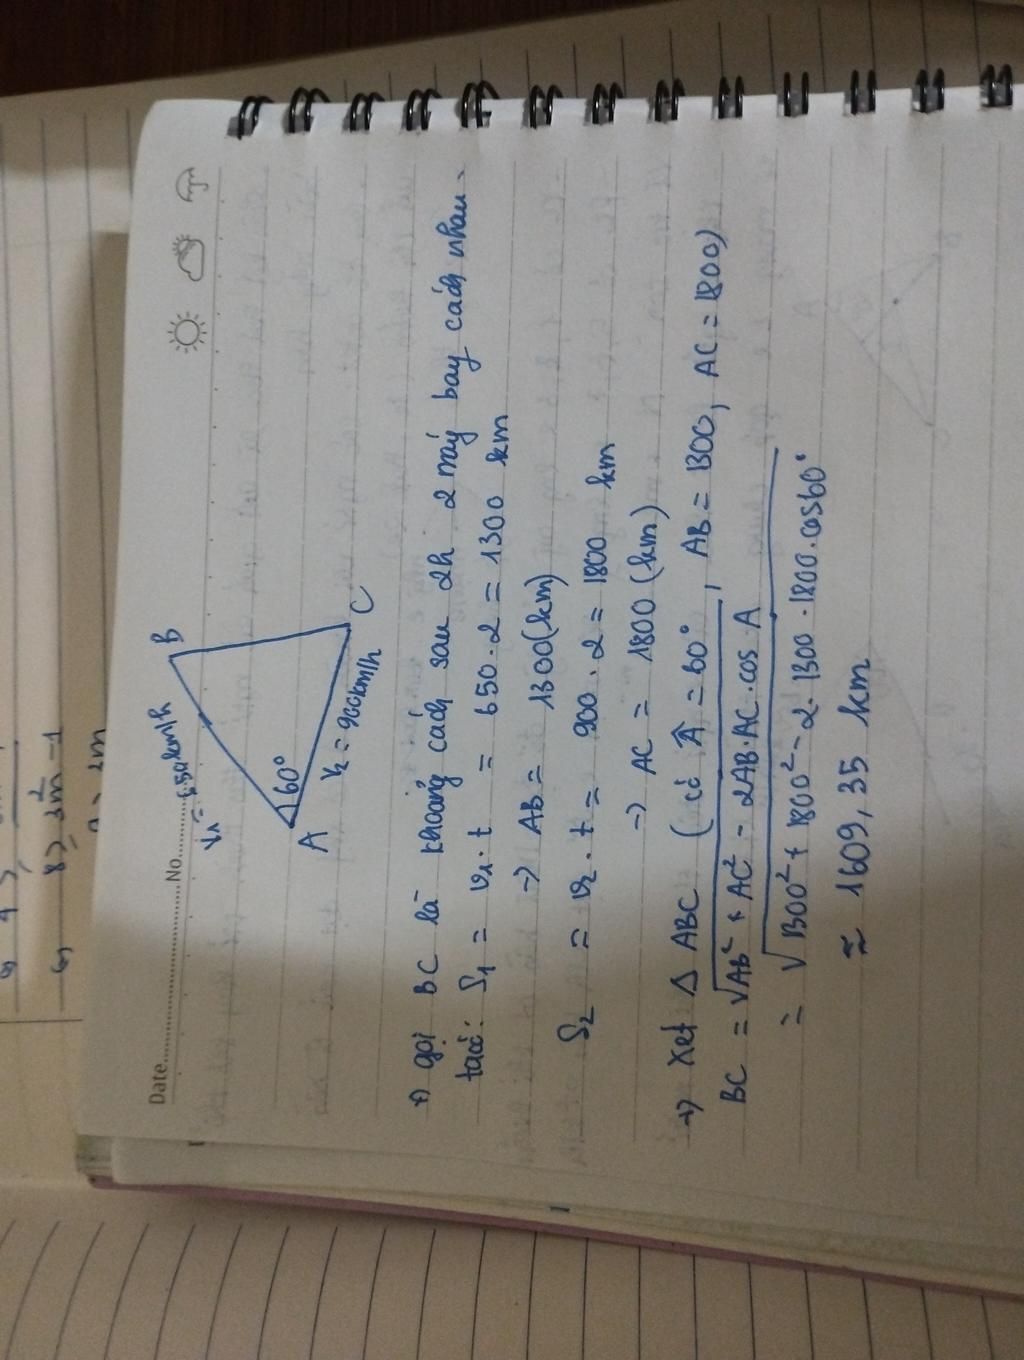 Date No.
v₁ = 650km/h
B
60°
A
C
v₂ = 900km/h
+) gọi BC là khoảng cách sau 2h 2 máy bay cách nhau.
tacó: S₁ = v₁.t = 650.2 = 1300 km
-> AB = 1300(km)
S₂ = v₂.t = 900.2 = 1800 km
-> AC = 1800 (km)
+) xét Δ ABC (có Â = 60°, AB = 1300, AC = 1800)
BC = √AB² + AC² - 2AB.AC.cos A
= √1300² + 1800² - 2.1300.1800.cos60°
≈ 1609,35 km
8 > 3m² -1